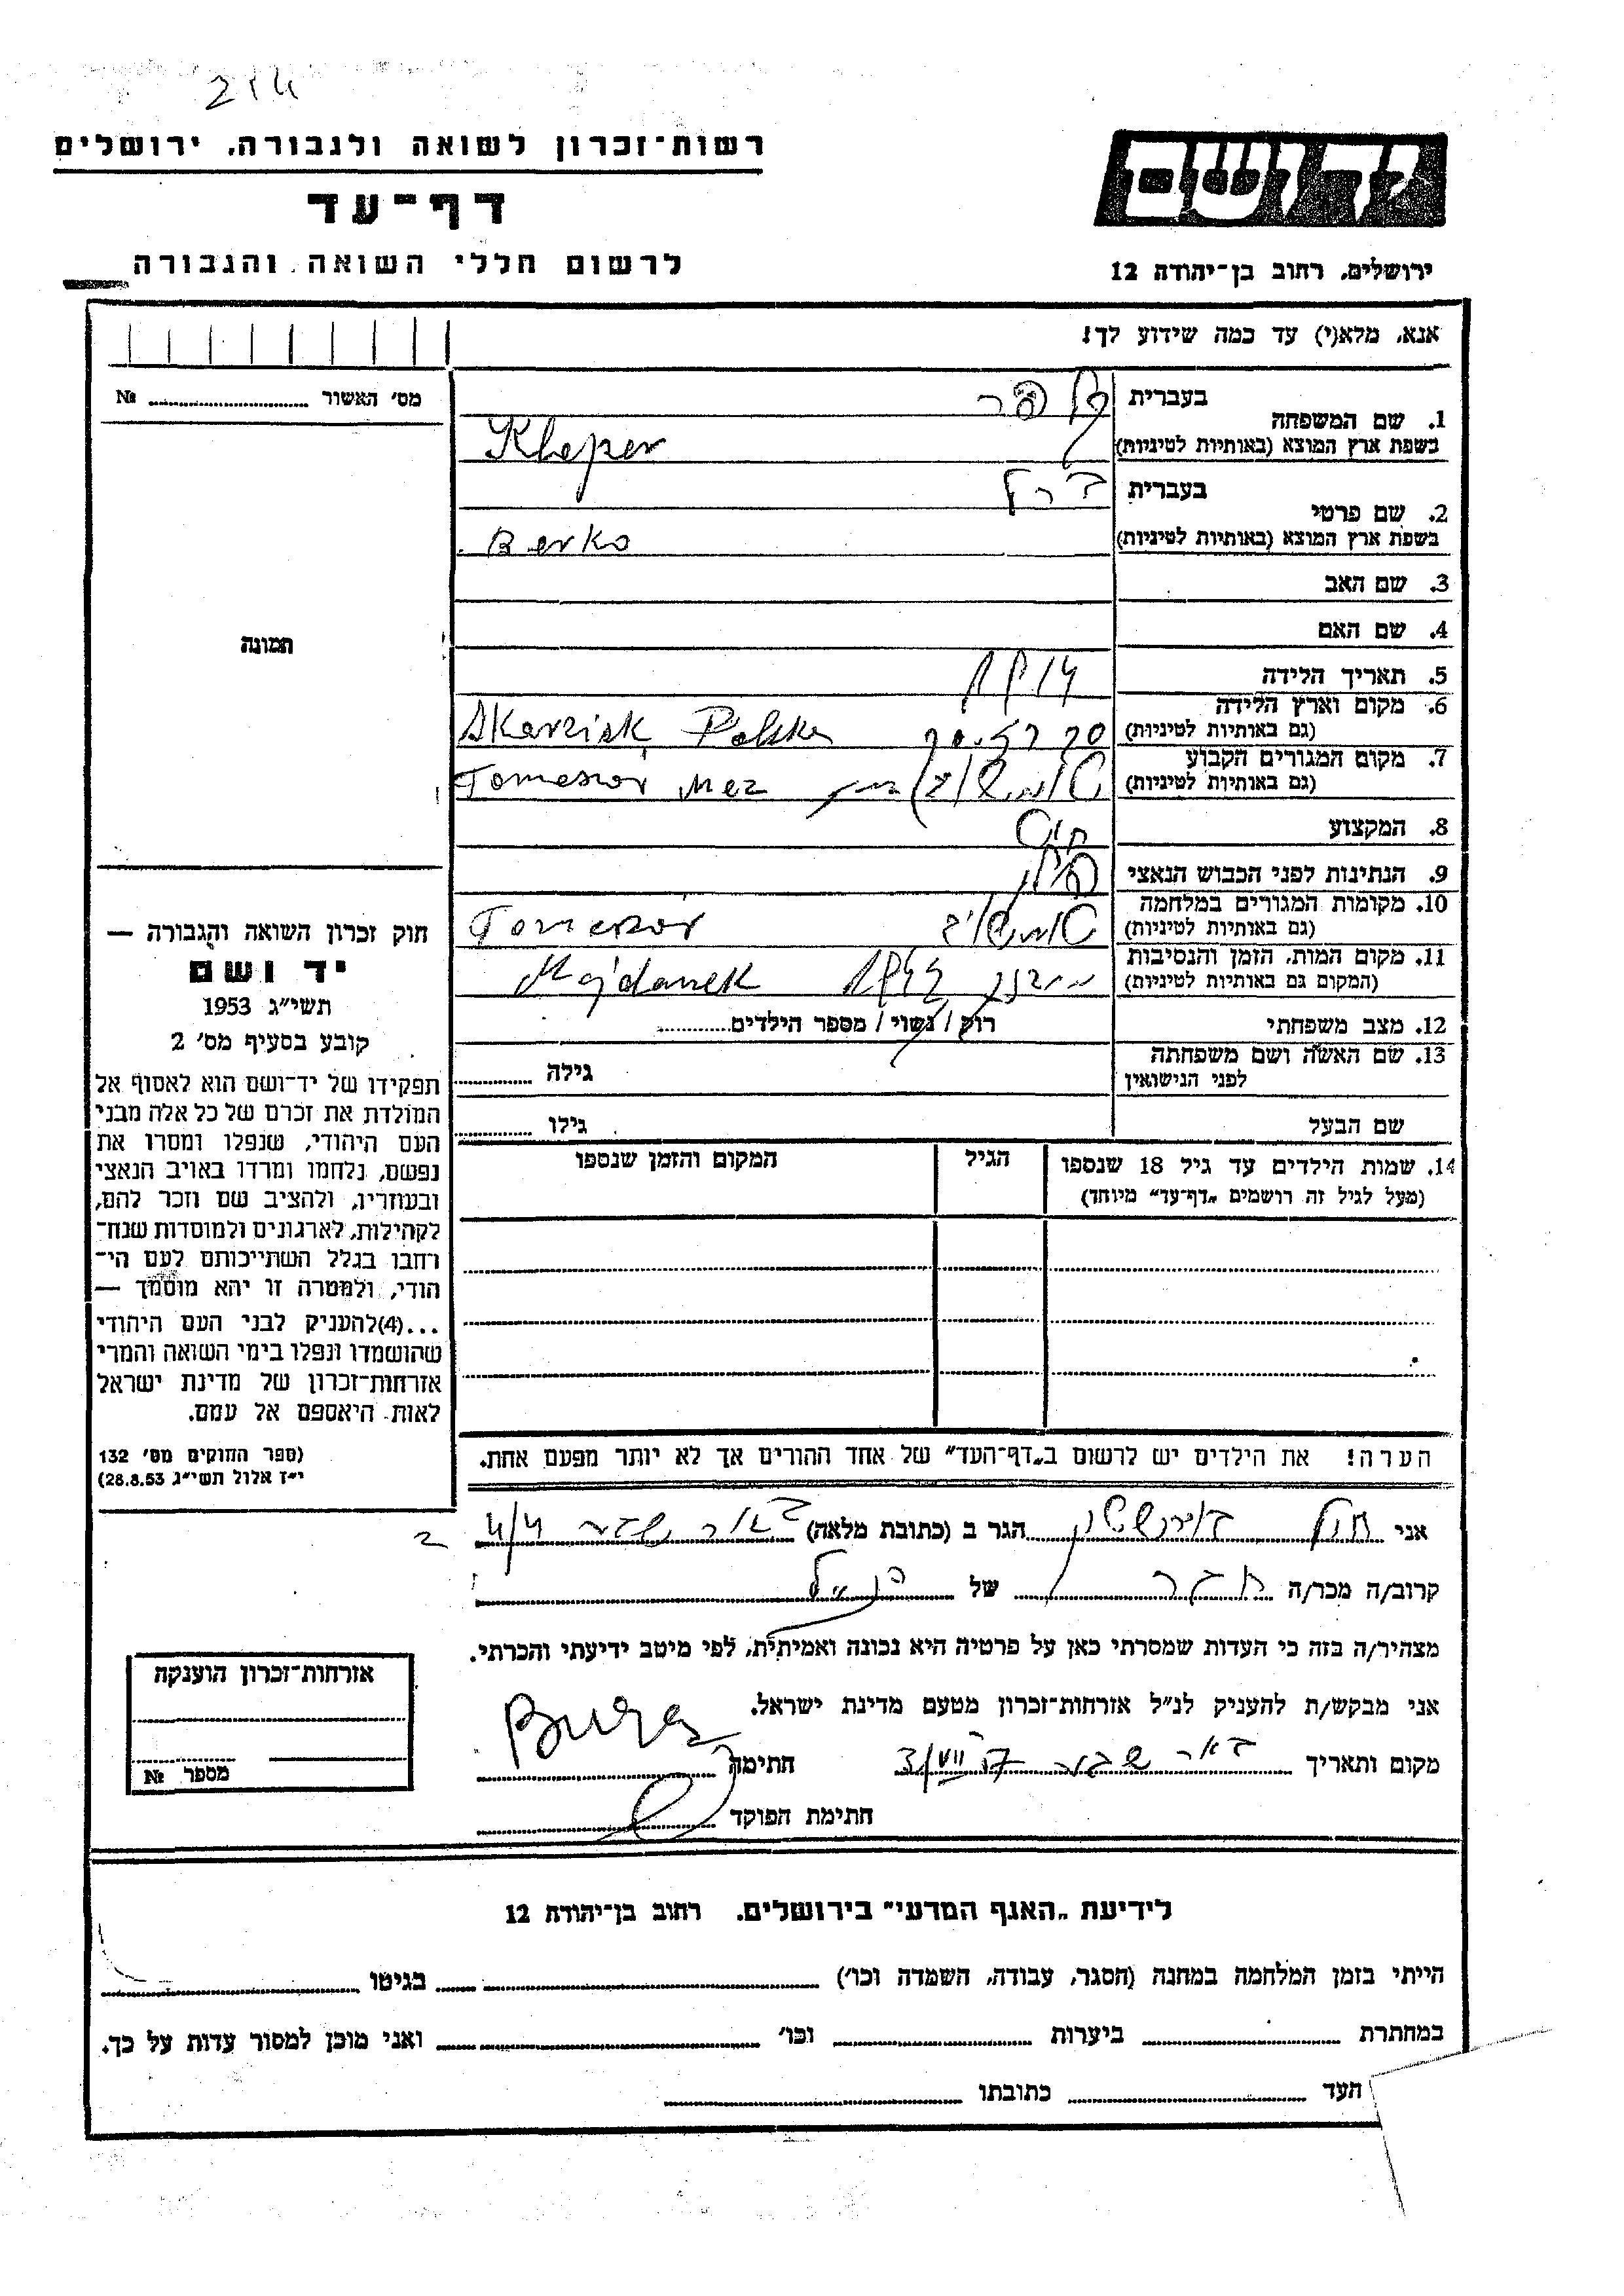 214
רשות־זכרון לשואה ולגבורה, ירושלים
יד ושם
דף־עד
לרשום חללי השואה והגבורה
ירושלים, רחוב בן־יהודה 12
אנא, מלא(י) עד כמה שידוע לך!
מס' האשור № ........
1. שם המשפחה
בעברית
בשפת ארץ המוצא (באותיות לטיניות) Kleper
2. שם פרטי
בעברית ברל
בשפת ארץ המוצא (באותיות לטיניות) Berko
3. שם האב
4. שם האם
תמונה
5. תאריך הלידה 1914
6. מקום וארץ הלידה
(גם באותיות לטיניות) Polska
7. מקום המגורים הקבוע
(גם באותיות לטיניות) טומשוב
8. המקצוע חיט
9. הנתינות לפני הכבוש הנאצי פולין
10. מקומות המגורים במלחמה
(גם באותיות לטיניות) טומשוב
11. מקום המות, הזמן והנסיבות
(המקום גם באותיות לטיניות) מיידנק Majdanek
12. מצב משפחתי רוק / נשוי / מספר הילדים........
13. שם האשה ושם משפחתה
לפני הנישואין גילה ........
שם הבעל גילו ........
14. שמות הילדים עד גיל 18 שנספו
(מעל לגיל זה רושמים „דף־עד” מיוחד)
הגיל
המקום והזמן שנספו
הערה! את הילדים יש לרשום ב„דף־העד” של אחד ההורים אך לא יותר מפעם אחת.
חוק זכרון השואה והגבורה —
יד ושם
תשי״ג 1953
קובע בסעיף מס' 2
תפקידו של יד־ושם הוא לאסוף אל
המולדת את זכרם של כל אלה מבני
העם היהודי, שנפלו ומסרו את
נפשם, נלחמו ומרדו באויב הנאצי
ובעוזריו, ולהציב שם וזכר להם,
לקהילות, לארגונים ולמוסדות שנח־
רבו בגלל השתייכותם לעם הי־
הודי, ולמטרה זו יהא מוסמך —
...(4)להעניק לבני העם היהודי
שהושמדו ונפלו בימי השואה והמרי
אזרחות־זכרון של מדינת ישראל
לאות היאספם אל עמם.
(ספר החוקים מס' 132
י״ז אלול תשי״ג 28.8.53)
אני הגר ב (כתובת מלאה) באר שבע
קרוב/ה מכר/ה חבר של הנ״ל
מצהיר/ה בזה כי העדות שמסרתי כאן על פרטיה היא נכונה ואמיתית, לפי מיטב ידיעתי והכרתי.
אני מבקש/ת להעניק לנ״ל אזרחות־זכרון מטעם מדינת ישראל.
מקום ותאריך באר שבע חתימה
חתימת הפוקד
אזרחות־זכרון הוענקה
מספר №
לידיעת „האגף המדעי” בירושלים, רחוב בן־יהודה 12
הייתי בזמן המלחמה במחנה (הסגר, עבודה, השמדה וכו') ........ בגיטו ........
במחתרת ........ ביערות ........ וכו' ........ ואני מוכן למסור עדות על כך.
העד ........ כתובתו ........